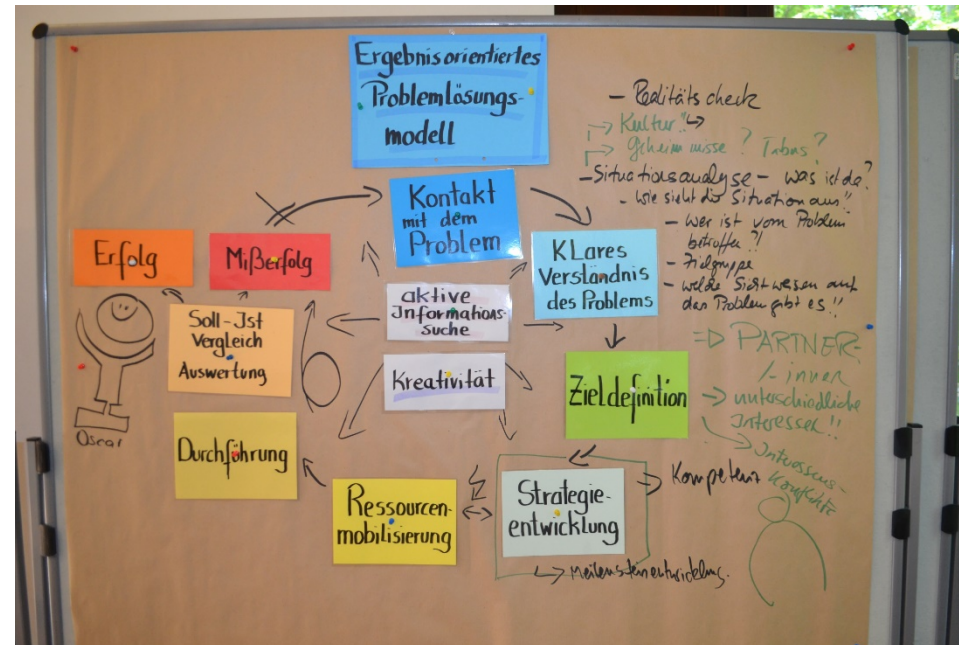 Ergebnisorientiertes
Problemlösungs-
modell
Kontakt
mit dem
Problem
Klares
Verständnis
des Problems
Zieldefinition
Strategie-
entwicklung
Ressourcen-
mobilisierung
Durchführung
Soll-Ist
Vergleich
Auswertung
Erfolg
Mißerfolg
aktive
Informations-
suche
Kreativität
Oscar
- Realitätscheck
Kultur?
Geheimnisse? Tabus?
- Situationsanalyse - was ist da?
- wie sieht die Situation aus!!
- wer ist vom Problem
betroffen?!
- Zielgruppe
- welche Sichtweisen auf
das Problem gibt es!!
=> PARTNER-
/-innen
unterschiedliche
Interessen!!
Interessens-
konflikte
Kompetenz
Meilensteinentwicklung.